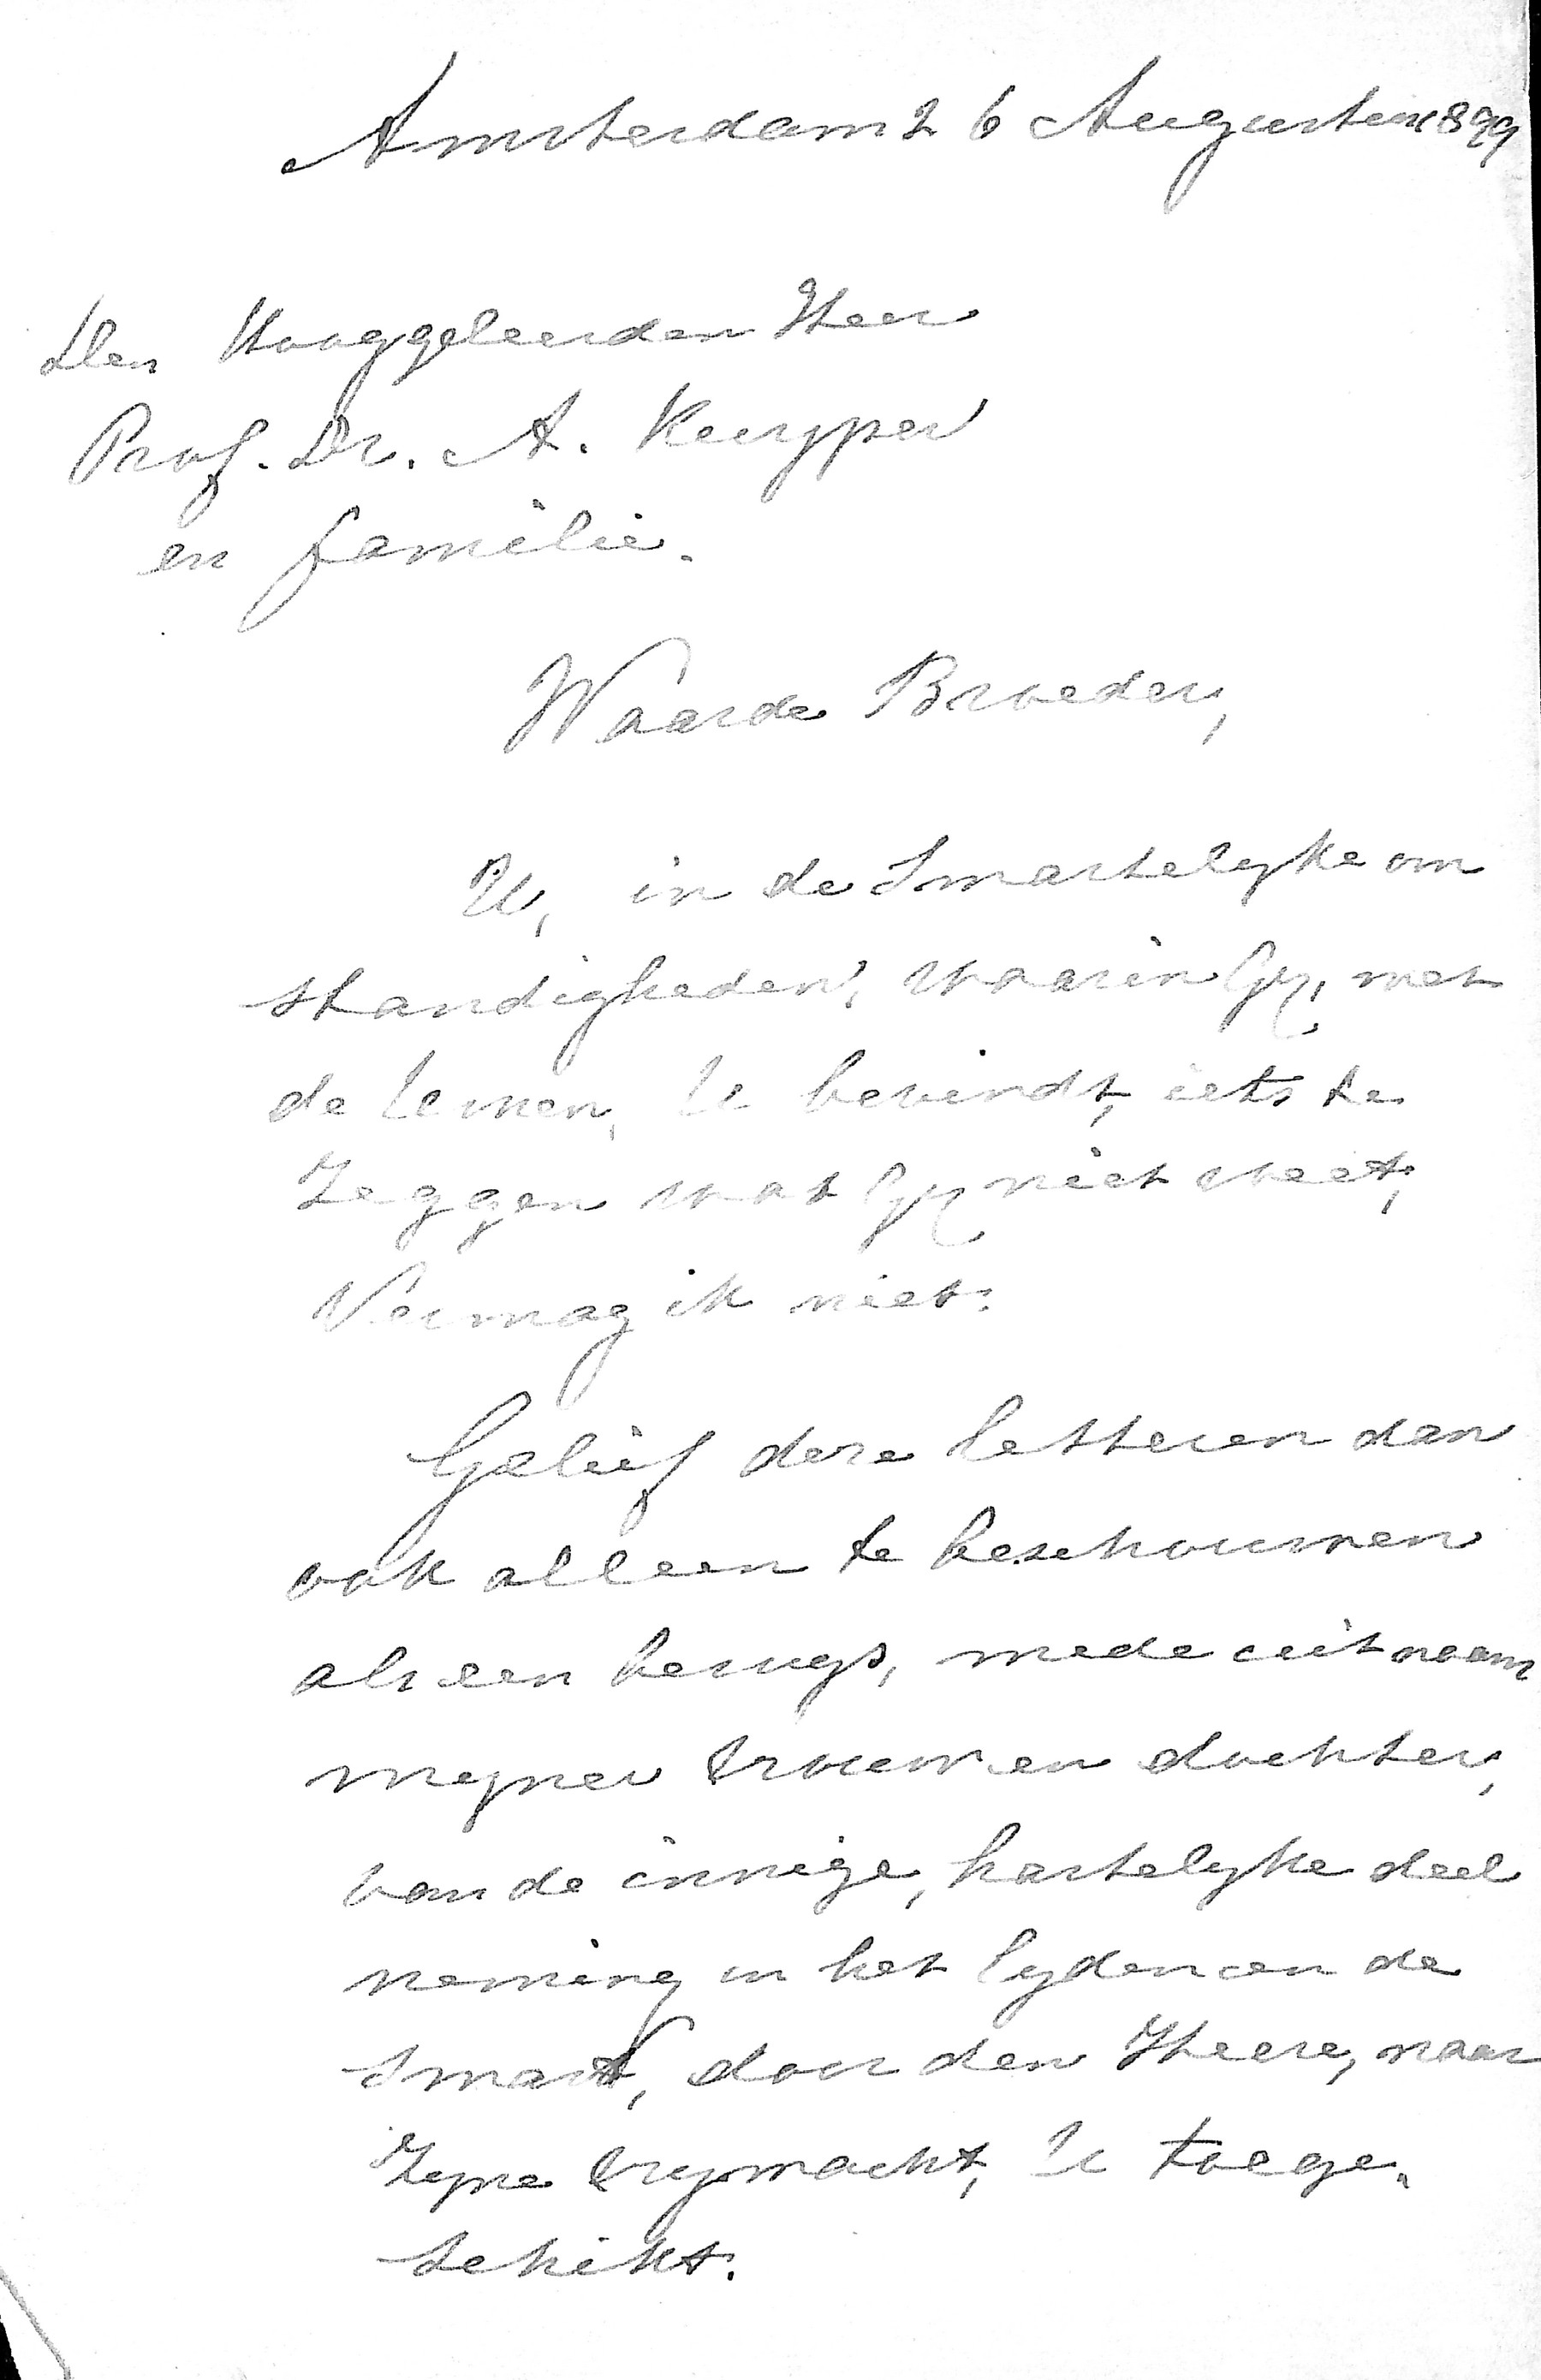 Amsterdam 26 Augustus 1899
Den Hooggeleerden Heer
Prof. Dr. A. Kuyper
en familie.
Waarde Broeder,
U, in de Smartelyke om
standigheden, waarin Gy, met
de Uwen, U bevindt, iets te
Zeggen wat Gy niet weet,
Vermag ik niet.
Gelief deze letteren dan
ook alleen te beschouwen
als een bewys, mede uit naam
myner vrouw en dochter,
van de innige, hartelyke deel
neming in het lyden en de
Smart, door den Heere, naar
Zyne vrymacht, U toege-
schikt.